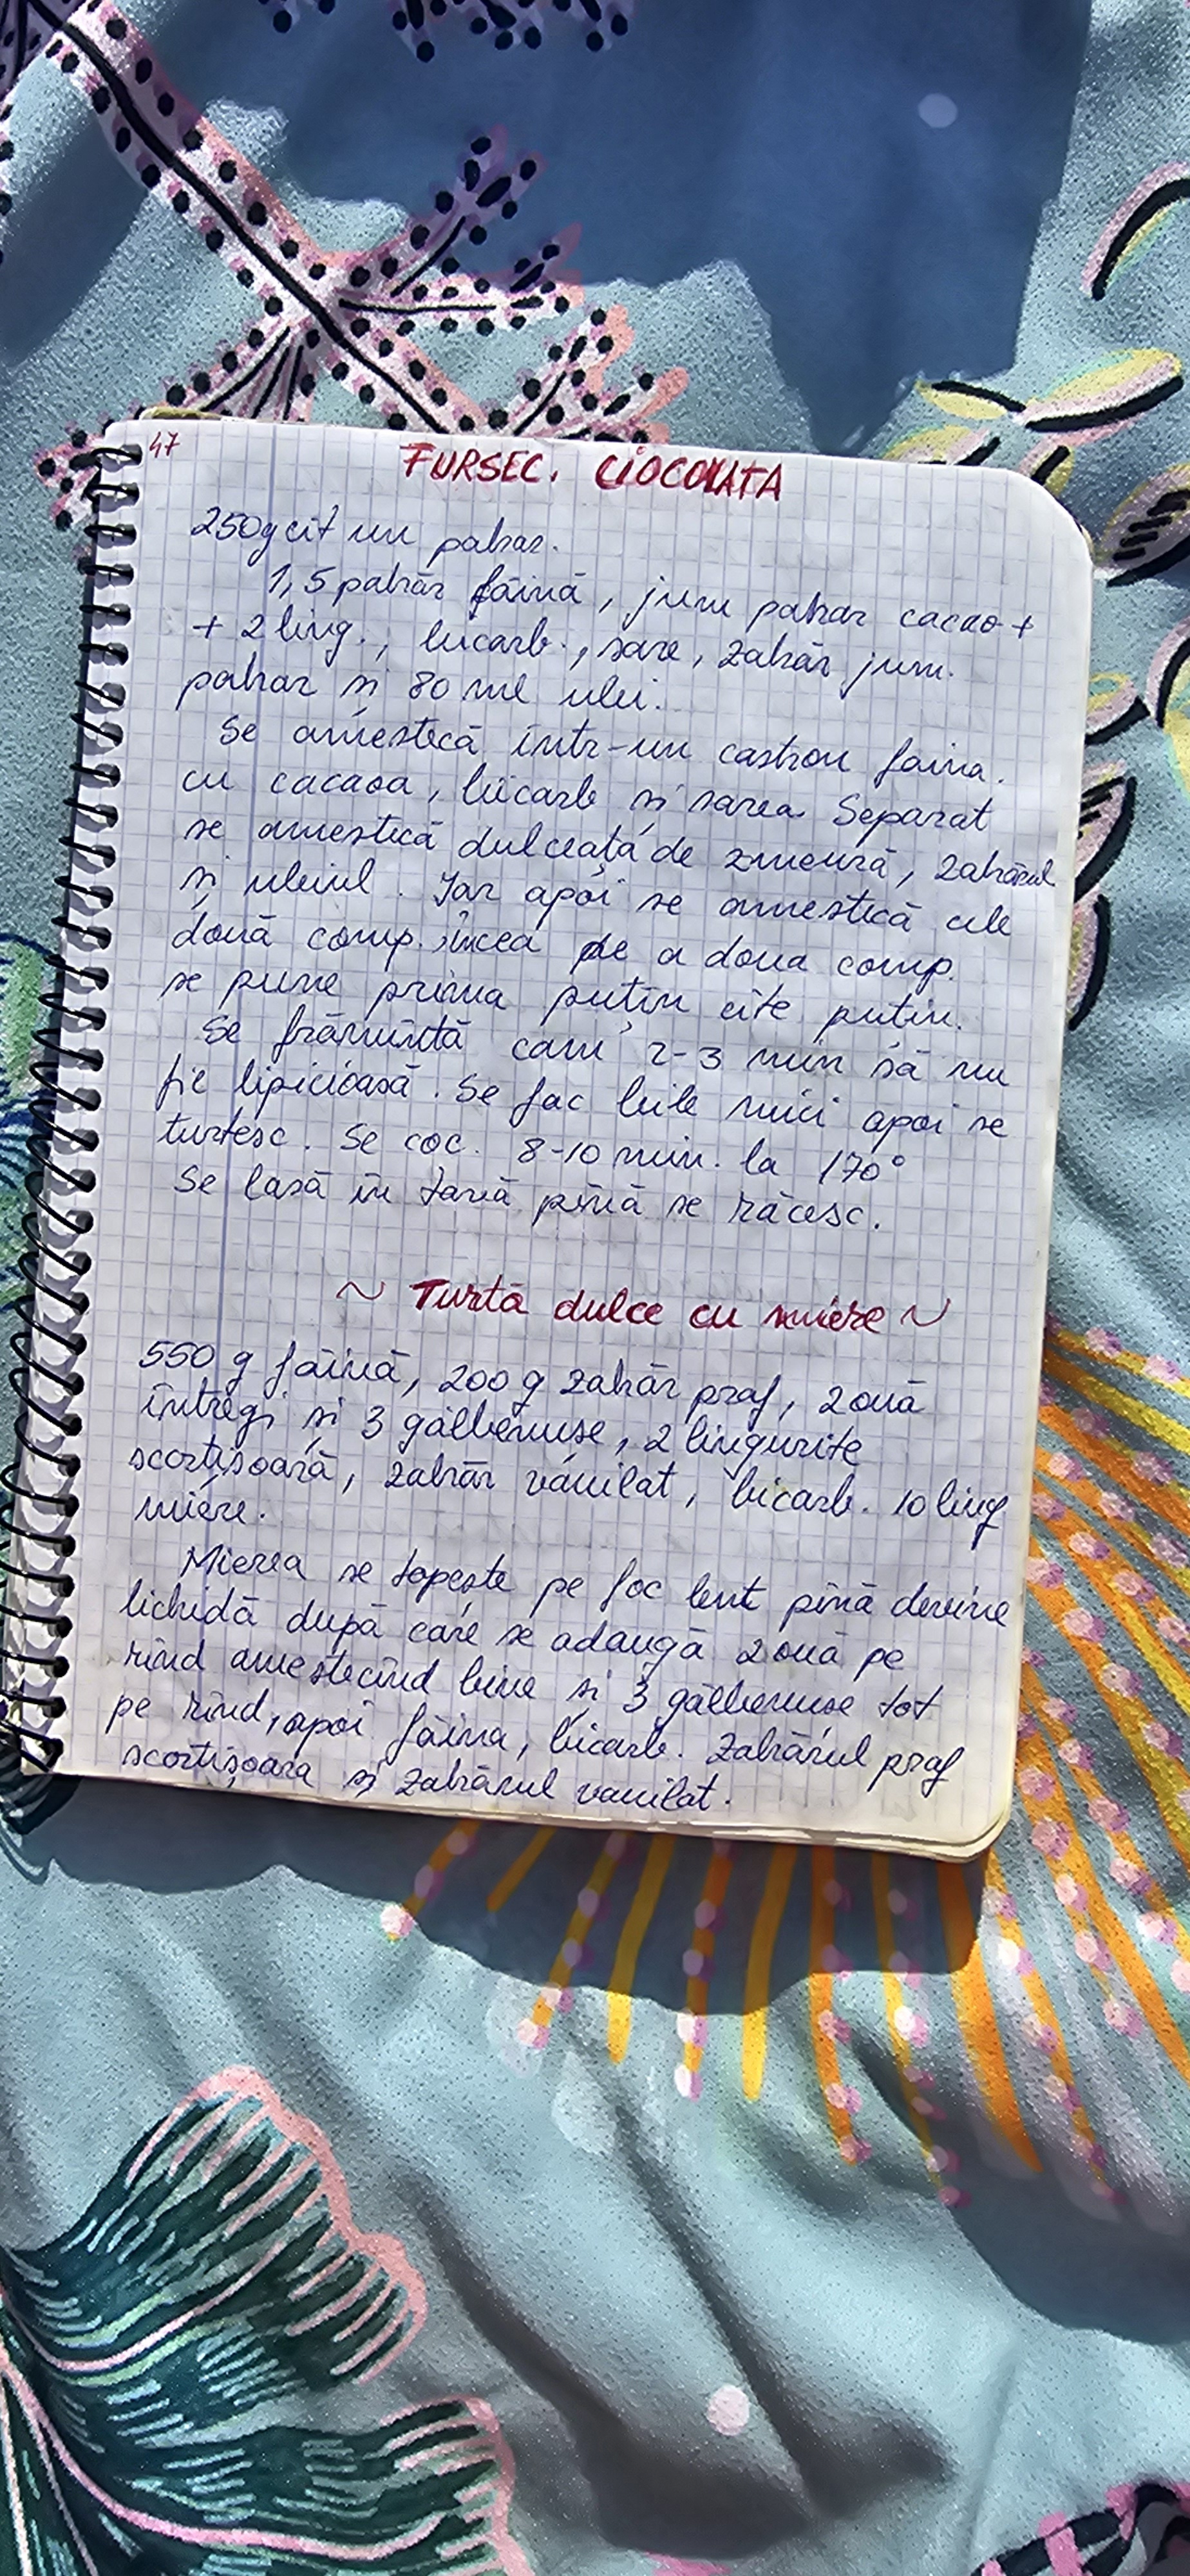 47
FURSEC. CIOCOLATA
250g cît un pahar.
1,5 pahăr făină, jum pahar cacao +
+ 2 ling., bicarb., sare, zahăr jum.
pahar și 80 ml ulei.
Se amestecă într-un castron faina.
cu cacaoa, bicarb și sarea. Separat
se amestică dulceață de zmeură, zahărul
și uleiul. Iar apoi se amestică cele
două comp. încea de a doua comp.
se pune prima puțin cîte puțin.
Se frămîntă cam 2-3 min să nu
fie lipicioasă. Se fac bile mici apoi se
turtesc. Se coc. 8-10 min. la 170°
Se lasă în tavă pînă se răcesc.
~ Turtă dulce cu miere ~
550 g făină, 200 g zahăr praf, 2 ouă
întregi și 3 gălbenușe, 2 lingurițe
scorțișoară, zahăr vanilat, bicarb. 10 ling
miere.
Mierea se topește pe foc lent pînă devine
lichidă după care se adaugă 2 ouă pe
rînd amestecînd bine și 3 gălbenușe tot
pe rînd, apoi făina, bicarb. Zahărul praf
scorțișoara și zahărul vanilat.